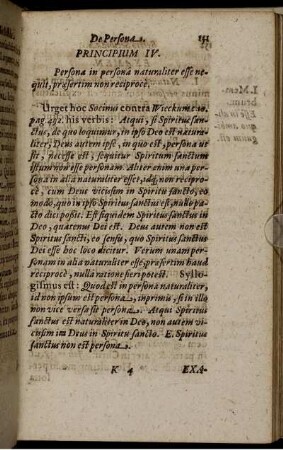 De Persona. 151
PRINCIPIUM IV.
Persona in personâ naturaliter esse ne-
quit, præsertim non reciprocè.
Urget hoc Socinus contra Wieckum c. 10.
pag. 492. his verbis: Atqui, si Spiritus san-
ctus, de quo loquimur, in ipso Deo est natura-
liter; Deus autem ipse, in quo est, persona ut
sit, necesse est, sequitur Spiritum sanctum
istum non esse personam. Aliter enim una per-
sona in alia naturaliter esset, idq; non recipro-
cè, cum Deus vicissim in Spiritu sancto, eo
modo, quo in ipso Spiritus sanctus est, nullo pa-
cto dici possit. Est siquidem Spiritus sanctus in
Deo, quatenus Dei est. Deus autem non est
Spiritus sancti, eo sensu, quo Spiritus sanctus
Dei esse hoc loco dicitur. Verum unam per-
sonam in alia naturaliter esse, præsertim haud
reciprocè, nulla ratione fieri potest. Syllo-
gismus est: Quod est in persona naturaliter,
id non ipsum est persona, inprimis, si in illo
non vice versa sit persona. Atqui Spiritus
sanctus est naturaliter in Deo, non autem vi-
cissim in Deus in Spiritu sancto. E. Spiritus
sanctus non est persona.
K 4 EXA-